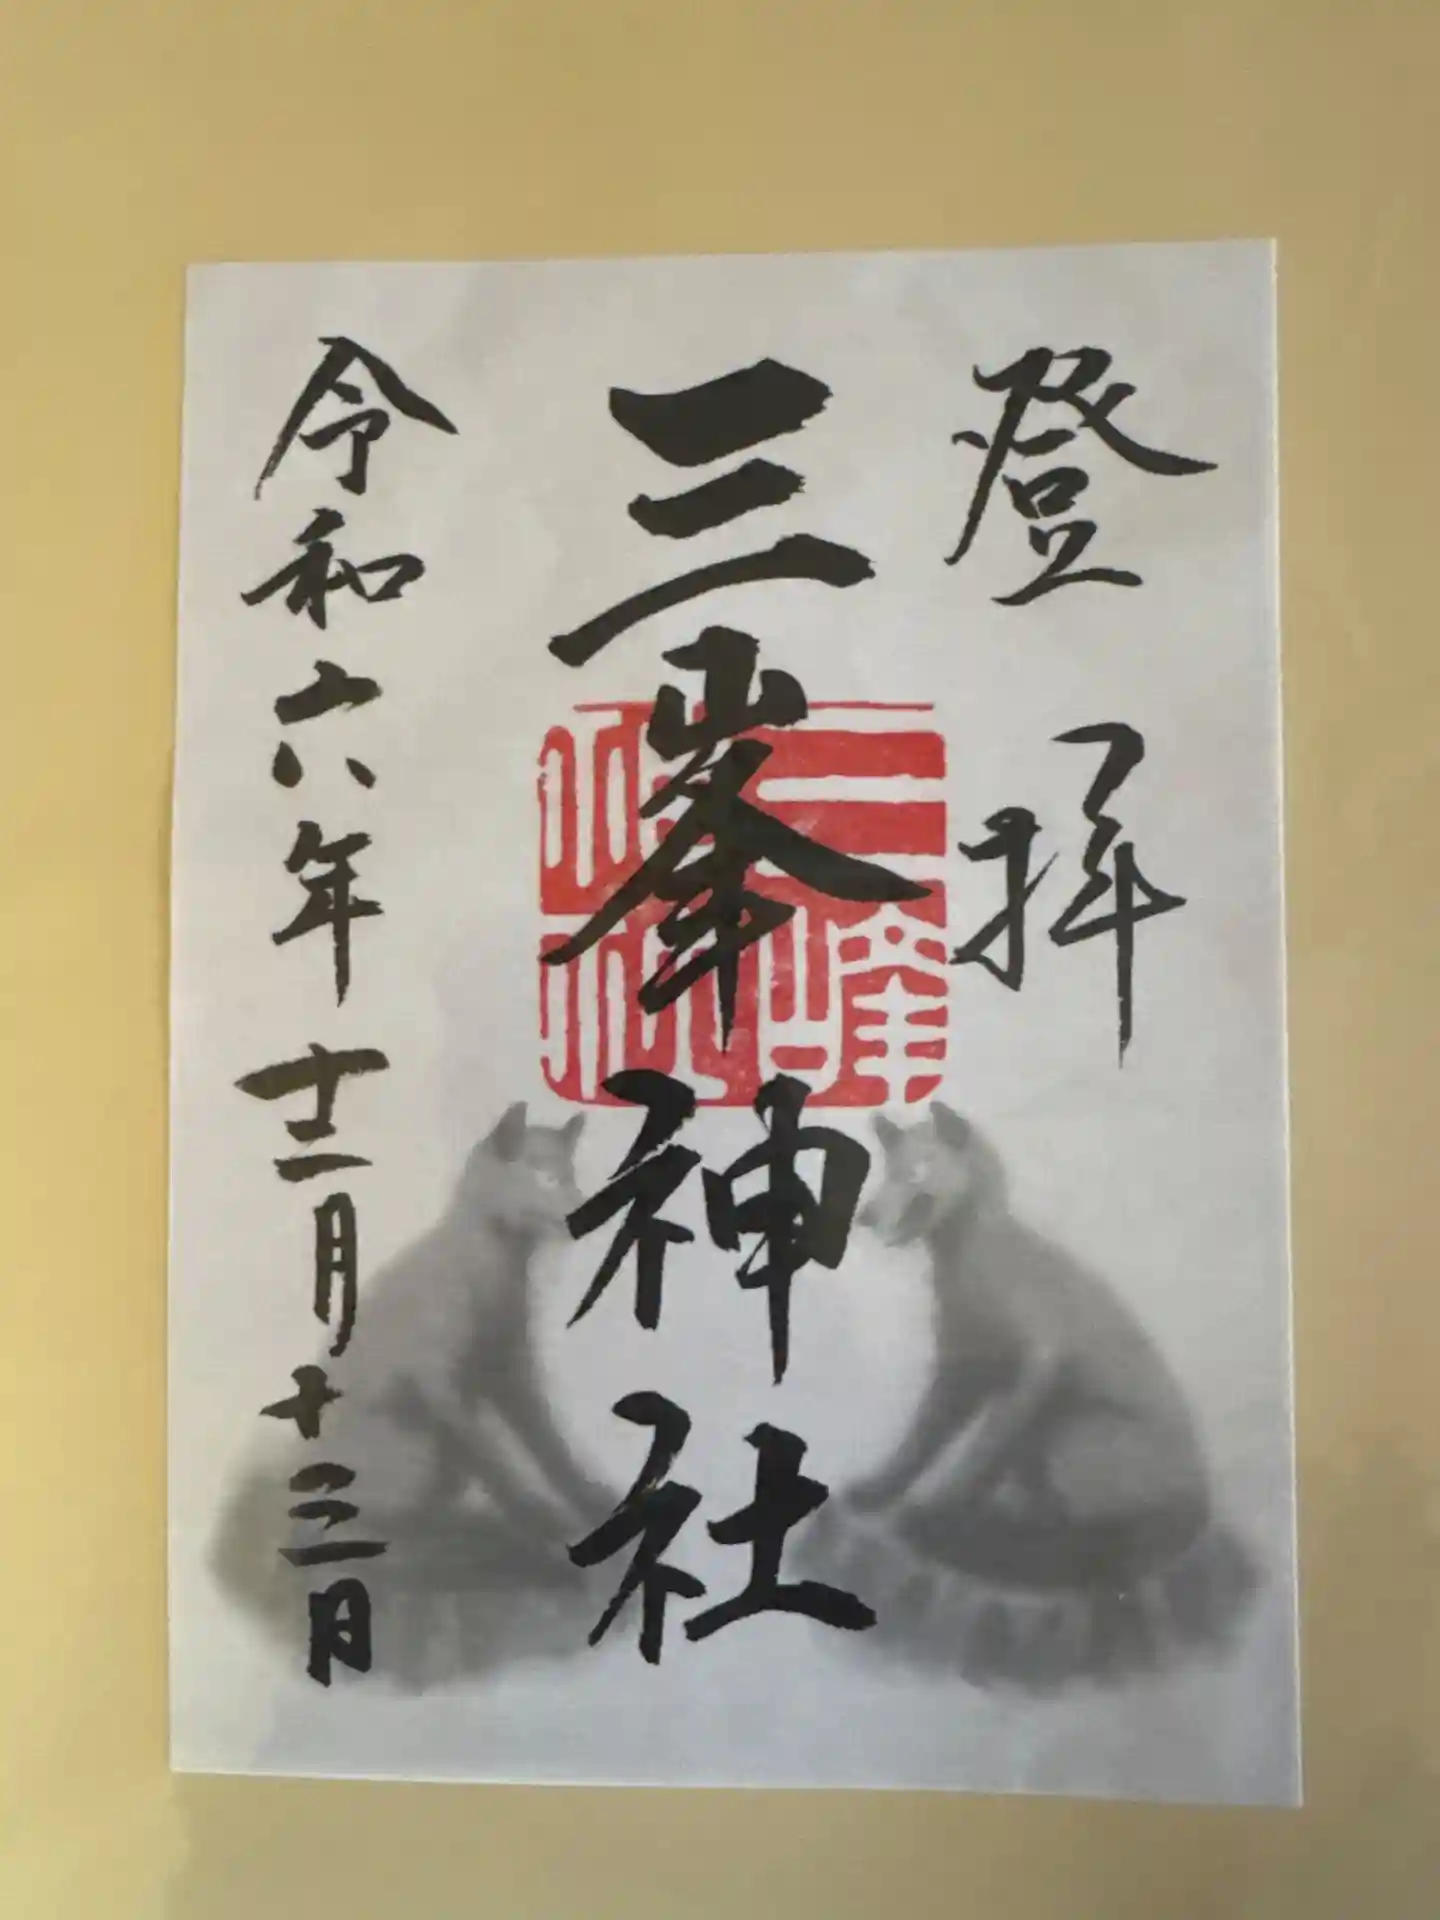 登拝
三峯神社
令和六年十二月十三日